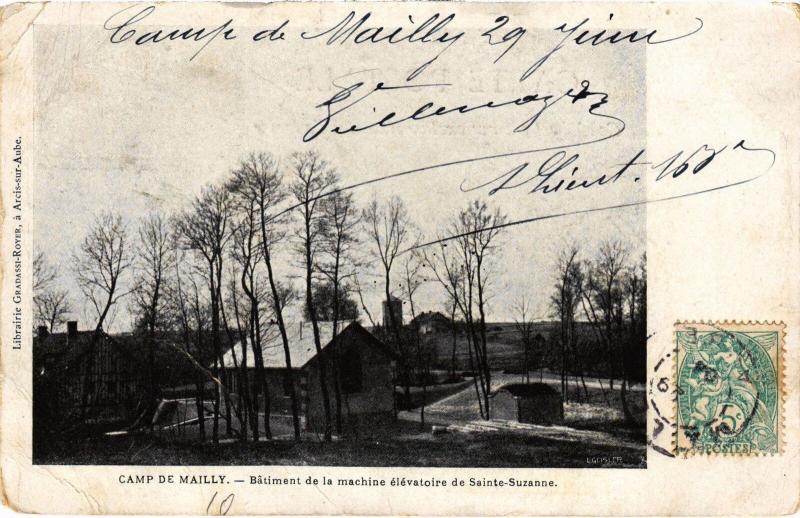 Camp de Mailly 29 Juin
S/ Lieut. 168e
Librairie GRADASSI-ROYER, à Arcis-sur-Aube.
L.GEISLER
5c
POSTES
CAMP DE MAILLY. — Bâtiment de la machine élévatoire de Sainte-Suzanne.
10